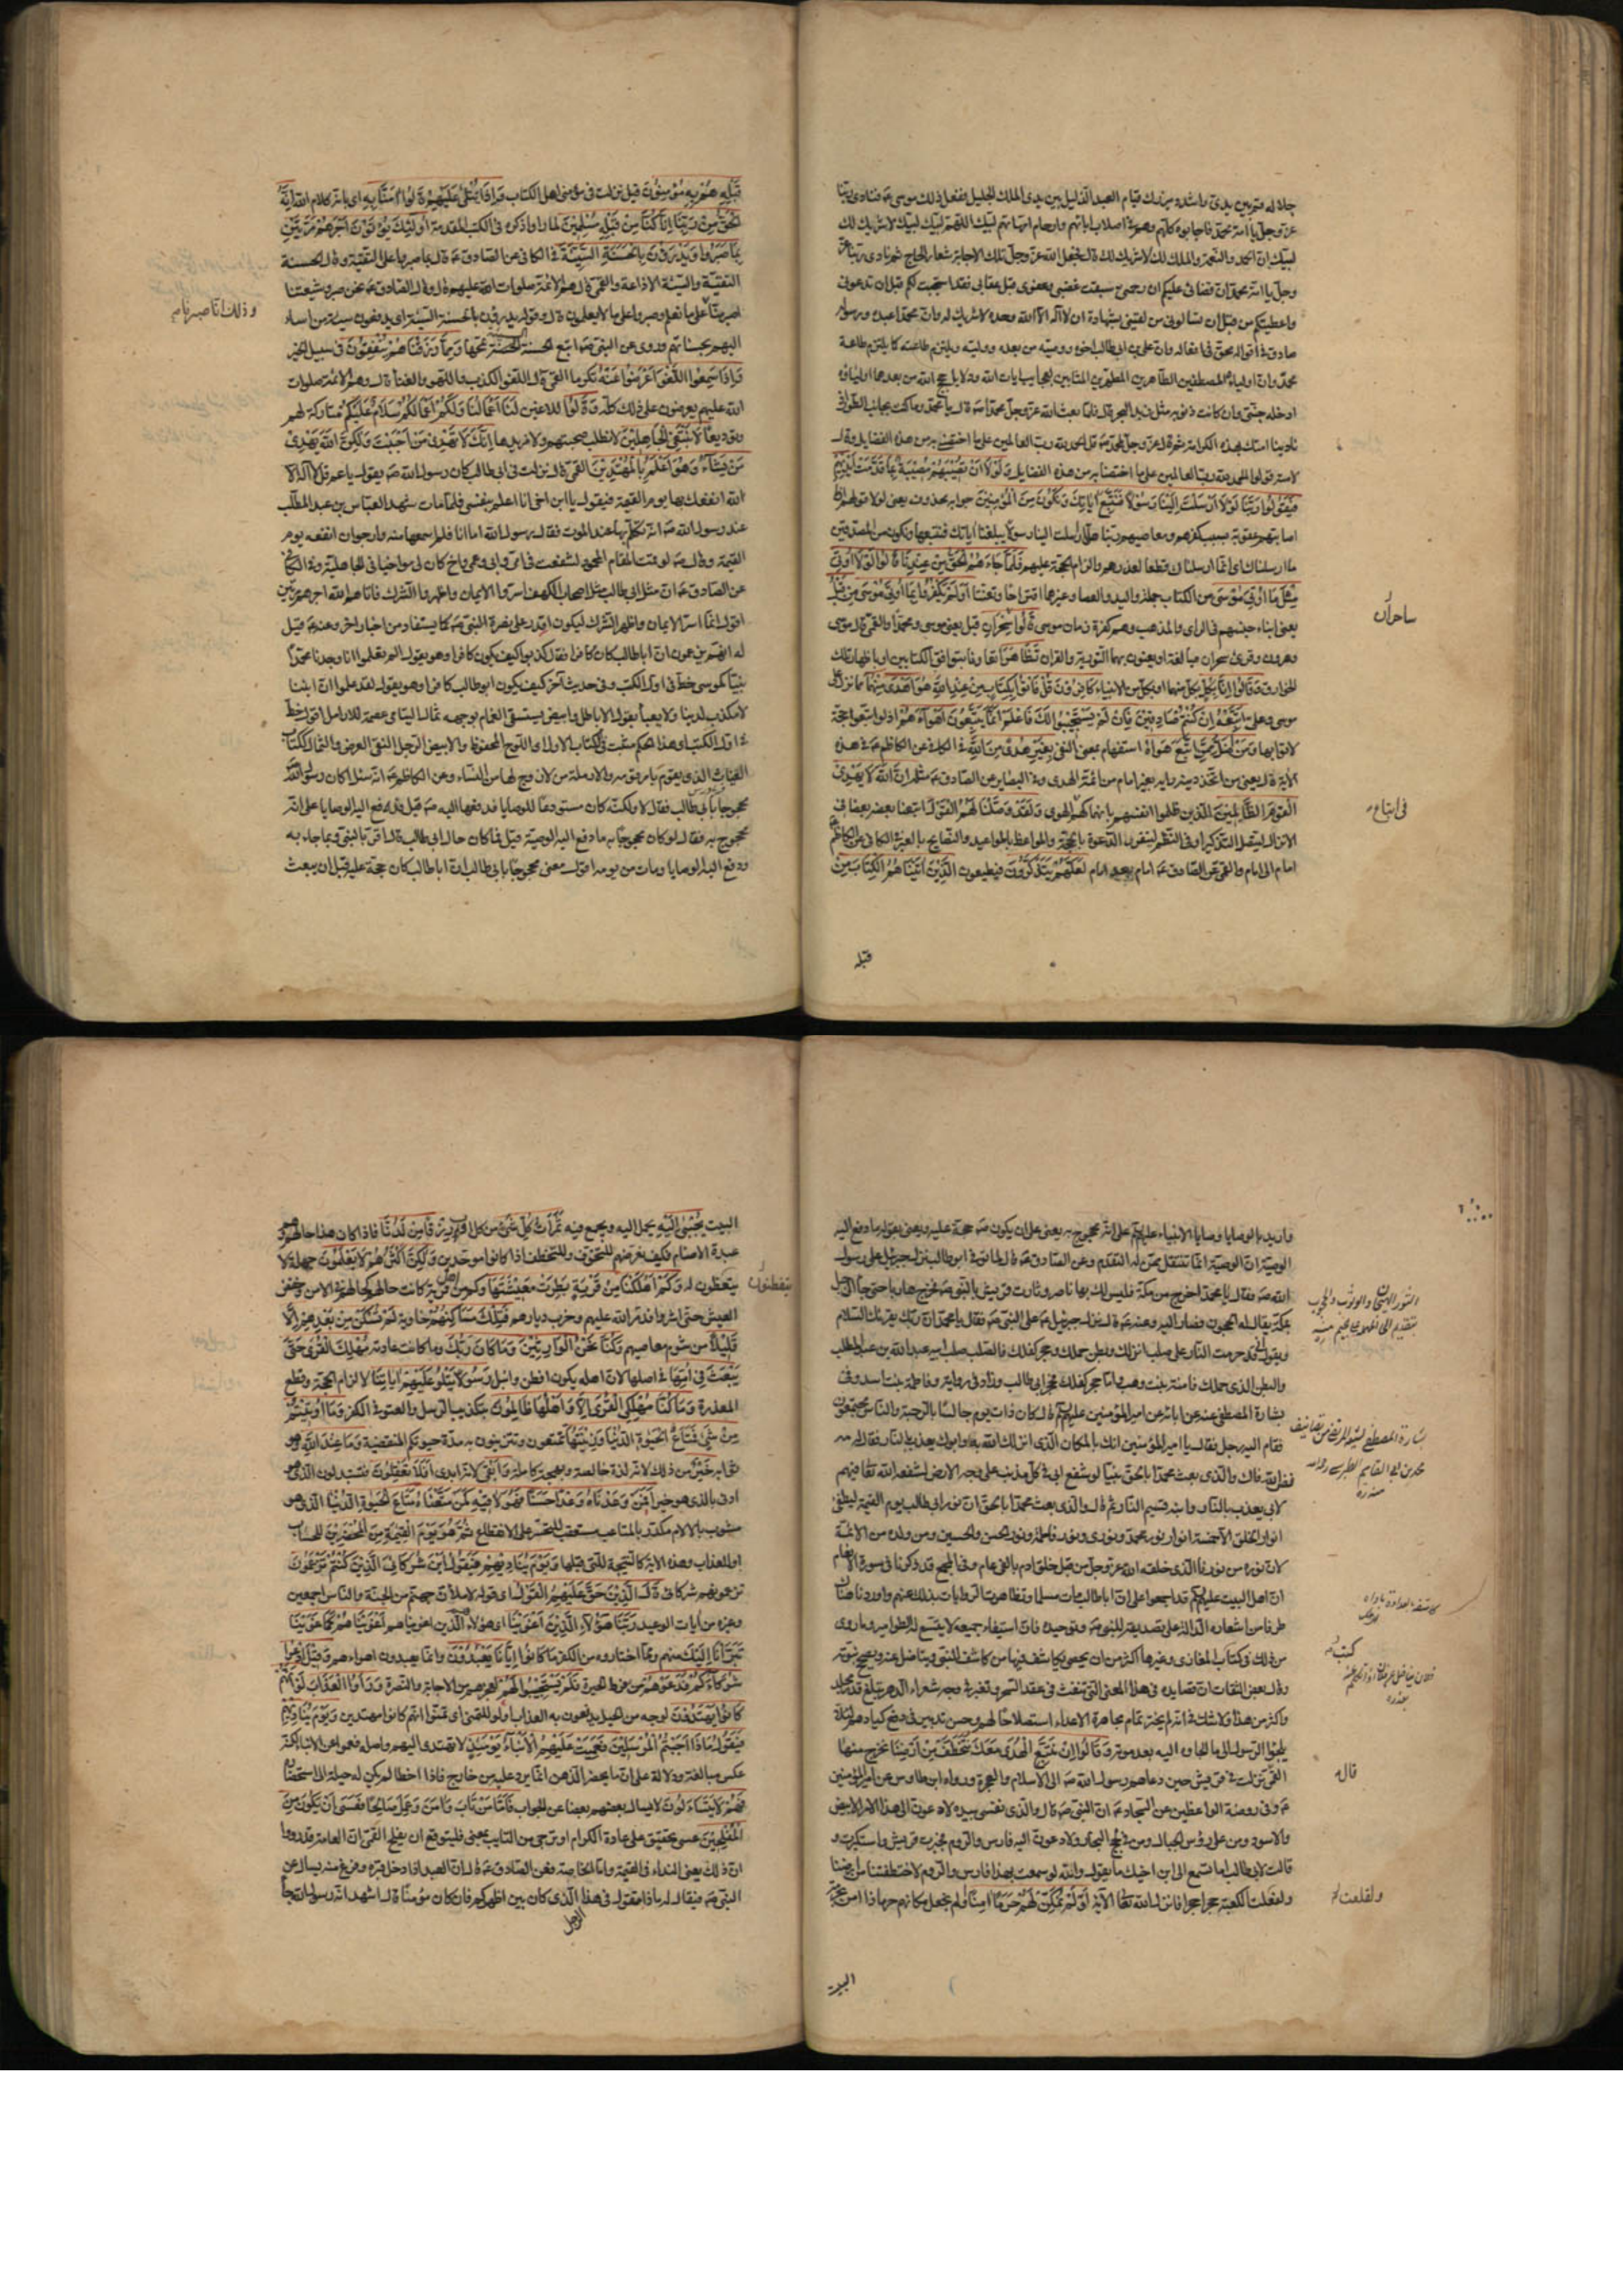 جلاله قم بين يدي واشدد مئزرك قيام العبد الذليل بين يدي الملك الجليل ففعل ذلك موسى ع فنادى ربنا
عز وجل يا امة محمد فاجابوه كلهم وهم في اصلاب ابائهم وارحام امهاتهم لبيك اللهم لبيك لبيك لا شريك لك
لبيك ان الحمد والنعمة والملك لك لا شريك لك قال فجعل الله عز وجل تلك الاجابة شعار الحاج ثم نادى ربنا عز
وجل يا امة محمد ان قضائي عليكم ان رحمتي سبقت غضبي وعفوي قبل عقابي فقد استجبت لكم قبل ان تدعوني
واعطيتكم من قبل ان تسالوني من لقيني بشهادة ان لا اله الا الله وحده لا شريك له وان محمدا عبده ورسوله
صادق في اقواله محق في افعاله وان علي بن ابي طالب اخوه ووصيه من بعده ووليه ويلتزم طاعته كما يلتزم طاعة
محمد وان اولياءه المصطفين الطاهرين المطهرين بعجايب ايات الله ودلايل حجج الله من بعدهما اولياؤه
ادخله جنتي وان كانت ذنوبه مثل زبد البحر قال فلما بعث الله عز وجل محمدا ص قال يا محمد وما كنت بجانب الطور اذ
نادينا امتك بهذه الكرامة ثم قال عز وجل لمحمد ص قل الحمد لله رب العالمين على ما اختصني به من هذه الفضيلة وقال
لامته قولوا الحمد لله رب العالمين على ما اختصنا به من هذه الفضايل وَلَوْلَا اَنْ تُصِيبَهُمْ مُصِيبَةٌ بِمَا قَدَّمَتْ اَيْدِيهِمْ
فَيَقُولُوا رَبَّنَا لَوْلَا اَرْسَلْتَ اِلَيْنَا رَسُولًا فَنَتَّبِعَ ايَاتِكَ وَنَكُونَ مِنَ الْمُؤْمِنِينَ جوابه محذوف يعنى لولا قولهم اذا
اصابتهم عقوبة بسبب كفرهم ومعاصيهم ربنا هلا ارسلت الينا رسولا يبلغنا اياتك فنتبعها ونكون من المصدقين
ما ارسلناك اى انما ارسلناك قطعا لعذرهم والزاما للحجة عليهم فَلَمَّا جَاءَهُمُ الْحَقُّ مِنْ عِنْدِنَا قَالُوا لَوْلَا اُوتِيَ
مِثْلَ مَا اُوتِيَ مُوسَى من الكتاب جملة واليد والعصا وغيرهما اقتراحا وتعنتا اَوَلَمْ يَكْفُرُوا بِمَا اُوتِيَ مُوسَى مِنْ قَبْلُ
يعنى ابناء جنسهم فى الراى والمذهب وهم كفرة زمان موسى قَالُوا سِحْرَانِ قيل يعنى موسى ومحمدا والقمى قال موسى
وهرون وقرئ سحران مبالغة او يعنون بهما التورية والقران تَظَاهَرَا تعاونا بتوافق الكتابين او باظهار تلك
الخوارق وَقَالُوا اِنَّا بِكُلٍّ بكل منهما او بكل من الانبياء كَافِرُونَ قُلْ فَأْتُوا بِكِتَابٍ مِنْ عِنْدِ اللهِ هُوَ اَهْدَى مِنْهُمَا مما نزل على
موسى وعلى اَتَّبِعْهُ اِنْ كُنْتُمْ صَادِقِينَ فَاِنْ لَمْ يَسْتَجِيبُوا لَكَ فَاعْلَمْ اَنَّمَا يَتَّبِعُونَ اَهْوَاءَهُمْ اذ لو اتبعوا حجة
لاتوا بها وَمَنْ اَضَلُّ مِمَّنِ اتَّبَعَ هَوَاهُ استفهام بمعنى النفى بِغَيْرِ هُدًى مِنَ اللهِ فى الكافى عن الكاظم ع فى هذه
الاية قال يعنى من اتخذ دينه رايه بغير امام من ائمة الهدى وفى البصاير عن الصادق ع مثله اِنَّ اللهَ لَا يَهْدِي
الْقَوْمَ الظَّالِمِينَ الذين ظلموا انفسهم بانهماكهم الهوى وَلَقَدْ وَصَّلْنَا لَهُمُ الْقَوْلَ اتبعنا بعضه بعضا فى
الانزال ليتصل التذكير او فى النظم ليتقرر الدعوة بالحجة والمواعظ بالمواعيد والنصايح بالعبر فى الكافى عن الكاظم ع
امام الى امام والقمى عن الصادق ع امام بعد امام لَعَلَّهُمْ يَتَذَكَّرُونَ فيطيعون الَّذِينَ اتَيْنَاهُمُ الْكِتَابَ مِنْ
ساحران
فى اتباع
قبله
قَبْلِهِ هُمْ بِهِ يُؤْمِنُونَ قيل نزلت فى مؤمنى اهل الكتاب وَاِذَا يُتْلَى عَلَيْهِمْ قَالُوا امَنَّا بِهِ اى بانه كلام الله اِنَّهُ
الْحَقُّ مِنْ رَبِّنَا اِنَّا كُنَّا مِنْ قَبْلِهِ مُسْلِمِينَ لما راوا ذكره فى الكتب المتقدمة اُولَئِكَ يُؤْتَوْنَ اَجْرَهُمْ مَرَّتَيْنِ
بِمَا صَبَرُوا وَيَدْرَؤُنَ بِالْحَسَنَةِ السَّيِّئَةَ فى الكافى عن الصادق ع قال بما صبروا على التقية وقال الحسنة
التقية والسيئة الاذاعة والقمى قال هم الائمة صلوات الله عليهم قال وقال الصادق ع نحن صبر وشيعتنا
اصبر منا على ما نعلم وصبروا على ما لا يعلمون قال وقوله ويدرؤن بالحسنة السيئة اى يدفعون سيئة من اساء
اليهم بحسناتهم وروى عن النبى ص اتبع الحسنة السيئة تمحها وَمِمَّا رَزَقْنَاهُمْ يُنْفِقُونَ فى سبيل الخير
وَاِذَا سَمِعُوا اللَّغْوَ اَعْرَضُوا عَنْهُ تكرما القمى قال اللغو الكذب واللهو والغناء قال وهم الائمة صلوات
الله عليهم يعرضون على ذلك كله وَقَالُوا للاغين لَنَا اَعْمَالُنَا وَلَكُمْ اَعْمَالُكُمْ سَلَامٌ عَلَيْكُمْ متاركة لهم
وتوديعا لَا نَبْتَغِي الْجَاهِلِينَ لا نطلب صحبتهم ولا نريدها اِنَّكَ لَا تَهْدِي مَنْ اَحْبَبْتَ وَلَكِنَّ اللهَ يَهْدِي
مَنْ يَشَاءُ وَهُوَ اَعْلَمُ بِالْمُهْتَدِينَ القمى قال نزلت فى ابى طالب كان رسول الله ص يقول يا عم قل لا اله الا
الله انفعك بها يوم القيمة فيقول يا ابن اخى انا اعلم بنفسى فلما مات شهد العباس بن عبد المطلب
عند رسول الله ص انه تكلم بها عند الموت فقال رسول الله اما انا فلم اسمعها منه وارجو ان انفعه يوم
القيمة وقال ص لو قمت المقام المحمود لشفعت فى امى وابى وعمى واخ كان لى مواخيا فى الجاهلية وفى الكافى
عن الصادق ع ان مثل ابى طالب مثل اصحاب الكهف اسروا الايمان واظهروا الشرك فاتاهم الله اجرهم مرتين
اقول انما اسر الايمان واظهر الشرك ليكون اقدر على نصرة النبى ص كما يستفاد من اخبار اخر وعنه ع قيل
له انهم يزعمون ان ابا طالب كان كافرا فقال كذبوا كيف يكون كافرا وهو يقول الم تعلموا انا وجدنا محمدا
نبيا كموسى خط فى اول الكتب وفى حديث آخر كيف يكون ابو طالب كافرا وهو يقول لقد علموا ان ابننا
لا مكذب لدينا ولا يعبأ بقول الاباطل وابيض يستسقى الغمام بوجهه ثمال اليتامى عصمة للارامل اقول خط
فى اول الكتب اى هذا الحكم مثبت فى الكتاب الاول اى اللوح المحفوظ والابيض الرجل النقى العرض والثمال ككتاب
الغياث الذى يقوم بامر قومه والارملة من لا زوج لها من النساء وعن الكاظم ع انه سئل اكان رسول الله
محجوجا بابى طالب فقال لا ولكنه كان مستودعا للوصايا فدفعها اليه ص قيل فدفع اليه الوصايا على انه
محجوج به فقال لو كان محجوجا به ما دفع اليه الوصية قيل فما كان حال ابى طالب قال اقر بالنبى وبما جاء به
ودفع اليه الوصايا ومات من يومه اقول معنى محجوجا بابى طالب ان ابا طالب كان حجة عليه قبل ان يبعث
وذلك انا صبرنا م
واريد بالوصايا وصايا الانبياء عليهم على انه محجوج به يعنى على ان يكون ص حجة عليه ويعنى بقوله ما دفع اليه
الوصية ان الوصية انما تنتقل ممن له التقدم وعن الصادق ع قال لما توفى ابو طالب نزل جبرئيل على رسول
الله ص فقال يا محمد اخرج من مكة فليس لك بها ناصر وثارت قريش بالنبى ص فخرج هاربا حتى جاء الى جبل
بمكة يقال له الحجون فصار اليه وعنه ع قال نزل جبرئيل ع على النبى ص فقال يا محمد ان ربك يقرئك السلام
ويقول انى قد حرمت النار على صلب انزلك وبطن حملك وحجر كفلك فالصلب صلب ابيه عبد الله بن عبد المطلب
والبطن الذى حملك فامنة بنت وهب واما حجر كفلك فحجر ابى طالب وزاد فى رواية وفاطمة بنت اسد وفى
بشارة المصطفى عنه عن ابائه عن امير المؤمنين عليهم قال كان ذات يوم جالسا بالرحبة والناس مجتمعون
فقام اليه رجل فقال يا امير المؤمنين انك بالمكان الذى انزلك الله به وابوك يعذب بالنار فقال له مه
فض الله فاك والذى بعث محمدا بالحق نبيا لو شفع ابى فى كل مذنب على وجه الارض لشفعه الله تعالى فيهم
لابى يعذب بالنار وابنه قسيم النار ثم قال والذى بعث محمدا بالحق ان نور ابى طالب يوم القيمة ليطفئ
انوار الخلق الا خمسة انوار نور محمد ونورى ونور فاطمة ونور الحسن والحسين ومن ولده من الائمة
لان نوره من نورنا الذى خلقه الله عز وجل من قبل خلق ادم بالفى عام وفى المجمع قد ذكرنا فى سورة الانعام
ان اهل البيت عليهم قد اجمعوا على ان ابا طالب مات مسلما وتظاهرت الروايات بذلك عنهم واوردنا هناك
طرفا من اشعاره الدالة على تصديقه للنبى ص وتوحيده فان استيفاء جميعه لا يتسع له الطوامير وما روى
من ذلك فى كتاب المغازى وغيرها اكثر من ان يحصى يكاشف فيها من كاشف النبى ويناضل عنه ويصحح نبوته
وقال بعض الثقات ان قصايده فى هذا المعنى التى تنفث فى عقد السحر وتغبر فى وجه شعراء الدهر تبلغ قدر مجلد
واكثر من هذا ولا شك فى انه لم يختر تمام مجاهرة الاعداء استصلاحا لهم وحسن تدبير فى دفع كيادهم لئلا
يلجؤا الرسول الى ما الجاوه اليه بعد موته وَقَالُوا اِنْ نَتَّبِعِ الْهُدَى مَعَكَ نُتَخَطَّفْ مِنْ اَرْضِنَا نخرج منها
القمى نزلت فى قريش حين دعاهم رسول الله ص الى الاسلام والهجرة ورواه ابن طاوس عن امير المؤمنين
ع وفى روضة الواعظين عن السجاد ع ان النبى ص قال والذى نفسى بيده لادعون الى هذا الامر الابيض
والاسود ومن على رؤس الجبال ومن فى لجج البحار ولادعون اليه فارس والروم فجبرت قريش واستكبرت و
قالت لابى طالب اما تسمع الى ابن اخيك ما يقول والله لو سمعت بهذا فارس والروم لاختطفتنا من ارضنا
ولقلعت الكعبة حجرا حجرا فانزل الله تعالى الآية اَوَلَمْ نُمَكِّنْ لَهُمْ حَرَمًا امِنًا اولم نجعل مكانهم حرما ذا امن بحرمة
بشارة المصطفى لشيعة المرتضى من تصانيف
محمد بن ابى القاسم الطبرى رحمه الله
منه ره
كتب
قال
ولقلعت
البيت
البيت يُجْبَى اِلَيْهِ يحمل اليه ويجمع فيه ثَمَرَاتُ كُلِّ شَيْءٍ من كل اوب رِزْقًا مِنْ لَدُنَّا فاذا كان هذا حالهم وهم
عبدة الاصنام فكيف نعرضهم للتخوف والتخطف اذا كانوا موحدين وَلَكِنَّ اَكْثَرَهُمْ لَا يَعْلَمُونَ جهلة لا
يتفطنون له وَكَمْ اَهْلَكْنَا مِنْ قَرْيَةٍ بَطِرَتْ مَعِيشَتَهَا وكم من اهل قرية كانت حالهم كحالهم فى الامن وخفض
العيش حتى اشروا فدمر الله عليهم وخرب ديارهم فَتِلْكَ مَسَاكِنُهُمْ خاوية لَمْ تُسْكَنْ مِنْ بَعْدِهِمْ اِلَّا
قَلِيلًا من شوم معاصيهم وَكُنَّا نَحْنُ الْوَارِثِينَ وَمَا كَانَ رَبُّكَ وما كانت عادته مُهْلِكَ الْقُرَى حَتَّى
يَبْعَثَ فِي اُمِّهَا فى اصلها لان اهله يكون افطن وانبل رَسُولًا يَتْلُو عَلَيْهِمْ ايَاتِنَا لالزام الحجة وقطع
المعذرة وَمَا كُنَّا مُهْلِكِي الْقُرَى اِلَّا وَاَهْلُهَا ظَالِمُونَ بتكذيب الرسل والعتو فى الكفر وَمَا اُوتِيتُمْ
مِنْ شَيْءٍ فَمَتَاعُ الْحَيَوةِ الدُّنْيَا وَزِينَتُهَا تمتعون وتتزينون به مدة حيوتكم المنقضية وَمَا عِنْدَ اللهِ وهو
ثوابه خَيْرٌ من ذلك لانه لذة خالصة وبهجة كاملة وَاَبْقَى لانه ابدى اَفَلَا تَعْقِلُونَ فتستبدلون الذى هو
ادنى بالذى هو خير اَفَمَنْ وَعَدْنَاهُ وَعْدًا حَسَنًا فَهُوَ لَاقِيهِ كَمَنْ مَتَّعْنَاهُ مَتَاعَ الْحَيَوةِ الدُّنْيَا الذى هو
مشوب بالالام مكدر بالمتاعب مستعقب للتحسر على الانقطاع ثُمَّ هُوَ يَوْمَ الْقِيمَةِ مِنَ الْمُحْضَرِينَ للحساب
او العذاب وهذه الاية كالنتيجة للتى قبلها وَيَوْمَ يُنَادِيهِمْ فَيَقُولُ اَيْنَ شُرَكَائِيَ الَّذِينَ كُنْتُمْ تَزْعُمُونَ
تزعمونهم شركائى قَالَ الَّذِينَ حَقَّ عَلَيْهِمُ الْقَوْلُ اى قوله لاملأن جهنم من الجنة والناس اجمعين
وغيره من ايات الوعيد رَبَّنَا هَؤُلَاءِ الَّذِينَ اَغْوَيْنَا اى هؤلاء الذين اغويناهم اَغْوَيْنَاهُمْ كَمَا غَوَيْنَا
تَبَرَّأْنَا اِلَيْكَ منهم ومما اختاروه من الكفر مَا كَانُوا اِيَّانَا يَعْبُدُونَ وانما يعبدون اهواءهم وَقِيلَ ادْعُوا
شُرَكَاءَكُمْ فَدَعَوْهُمْ من فرط الحيرة فَلَمْ يَسْتَجِيبُوا لَهُمْ لعجزهم من الاجابة والنصرة وَرَأَوُا الْعَذَابَ لَوْ اَنَّهُمْ
كَانُوا يَهْتَدُونَ لوجه من الحيل يدفعون به العذاب او لو للتمنى اى تمنوا انهم كانوا مهتدين وَيَوْمَ يُنَادِيهِمْ
فَيَقُولُ مَاذَا اَجَبْتُمُ الْمُرْسَلِينَ فَعَمِيَتْ عَلَيْهِمُ الْاَنْبَاءُ يَوْمَئِذٍ لا تهتدى اليهم واصله فعموا عن الانباء لكنه
عكس مبالغة ودلالة على ان ما يحضر الذهن انما يرد عليه من خارج فاذا اخطا لم يكن له حيلة الى استحضاره
فَهُمْ لَا يَتَسَاءَلُونَ لا يسال بعضهم بعضا عن الجواب فَاَمَّا مَنْ تَابَ وَامَنَ وَعَمِلَ صَالِحًا فَعَسَى اَنْ يَكُونَ مِنَ
الْمُفْلِحِينَ عسى تحقيق على عادة الكرام او ترجى من التايب بمعنى فليتوقع ان يفلح القمى ان العامة قد رووا
ان ذلك يعنى النداء فى القيمة واما الخاصة فعن الصادق ع قال ان العبد اذا دخل قبره وفزع منه يسال عن
النبى ص فيقال له ماذا تقول فى هذا الذى كان بين اظهركم فان كان مؤمنا قال اشهد انه رسول الله جاء
يتفطنون